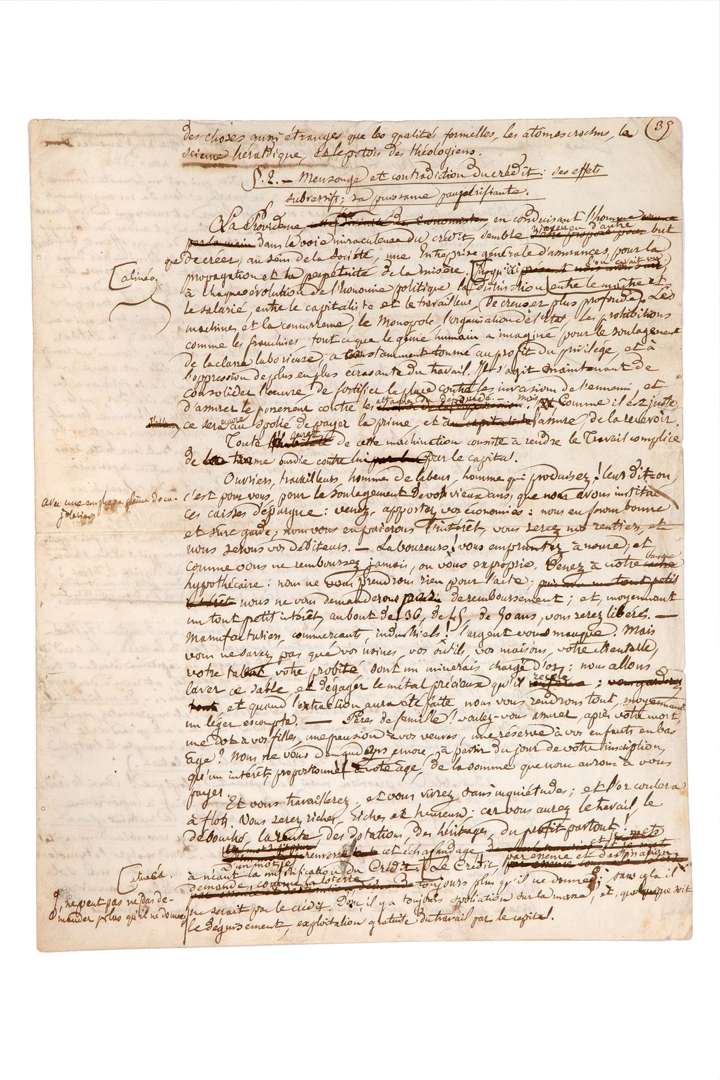 des choses aussi étranges que les qualités formelles, les atomes crochus, la (35
science héraldique, et le patois des théologiens.
§. 2. — Mensonge et contradiction du crédit: ses effets
subversifs; sa puissance paupérifiante.
La Providence en conduisant l'homme
dans la voie miraculeuse du crédit, semble but
que de créer, au sein de la société, une Entreprise générale d'assurances pour la
Alinéa
propagation et la perpétuité de la misère.
à chaque évolution de l'économie politique la distinction entre le maître et
le salarié, entre le capitaliste et le travailleur, se creuser plus profonde. Les
machines, et la concurrence, le Monopole l'organisation de l'état, les prohibitions
comme les franchises tout ce que le génie humain a imaginé pour le soulagement
de la classe laborieuse, a constamment tourné au profit du privilège, et à
l'oppression de plus en plus écrasante du travail. Il s'agit maintenant de
consolider l'œuvre, de fortifier la place contre les invasions de l'ennemi, et
d'assurer le possesseur contre les attaques du dépossédé. — mais Comme il est juste
ce sera au spolié de payer la prime, et assuré, de la recevoir.
Toute de cette machination consiste à rendre le Travail complice
de la ourdie contre lui par le capital.
Ouvriers, travailleurs, hommes de labeur, hommes qui produisez! leur dit-on
avec une emphase pleine de ca-
jolerie,
c'est pour vous, pour le soulagement de vos vieux ans, que nous avons institué
ces caisses d'épargne: venez, apportez vos économies: nous en ferons bonne
et sûre garde, nous vous en paierons l'intérêt, vous serez nos rentiers, et
nous serons vos débiteurs. — Laboureurs! vous empruntez à usure, et
comme vous ne remboursez jamais, on vous exproprie. Venez à notre banque
hypothécaire: nous ne vous prendrons rien pour l'acte;
nous ne vous demanderons point de remboursement; et, moyennant
un tout petit intérêt, au bout de 36, de 45, de 50 ans, vous serez libérés. —
Manufacturiers, commerçants, industriels! l'argent vous manque. Mais
vous ne savez pas que vos usines, vos outils, vos maisons, votre clientelle,
votre talent votre probité sont un minerais chargé d'or: nous allons
laver ce sable, et dégager le métal précieux qu'il recèle;
et quand l'extraction aura été faite nous vous rendrons tout, moyennant
un léger escompte. — Pères de famille! voulez-vous assurer, après votre mort,
une dot à vos filles, une pension à vos veuves, une réserve à vos enfants en bas
âge? Nous ne vous demandons encore, à partir du jour de votre inscription,
qu'un intérêt, proportionné à votre âge, de la somme que nous aurons à vous
payer.
Et vous travaillerez, et vous vivrez sans inquiétudes; et l'or coulera
à flots. Vous serez riches, riches et heureux: car vous aurez le travail, le
débouché, la rente, des dotations, des héritages, du profit partout!
et échafaudage
d'un mot je
Alinéa.
la mystification du Crédit. Le Crédit,
il, ne peut pas ne pas de-
mander plus qu'il ne donne;
toujours plus qu'il ne donne; sans cela il
ne serait pas le crédit. Donc il y a toujours spoliation sur la masse, et, quelque soit
le déguisement, exploitation gratuite du travail par le capital.